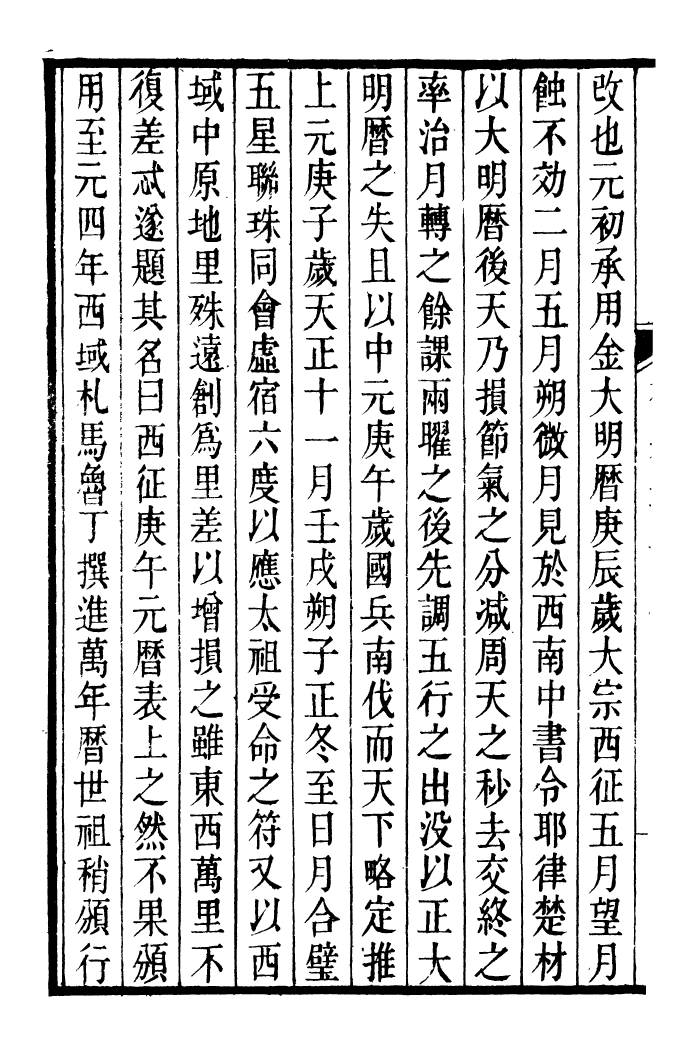 改也元初承用金大明暦庚辰歲大宗西征五月望月
蝕不効二月五月朔微月見於西南中書令耶律楚材
以大明暦後天乃損節氣之分减周天之秒去交終之
率治月轉之餘課兩曜之後先調五行之出没以正大
明暦之失且以中元庚午歲國兵南伐而天下略定推
上元庚子歲天正十一月壬戌朔子正冬至日月合璧
五星聯珠同會虛宿六度以應太祖受命之符又以西
域中原地里殊遠創爲里差以增損之雖東西萬里不
復差忒遂題其名曰西征庚午元暦表上之然不果頒
用至元四年西域札馬魯丁撰進萬年暦世祖稍頒行